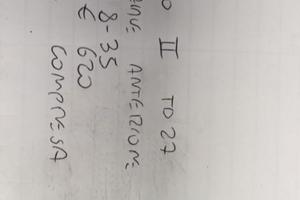 O II TO27
ANTERIORE
8-35
€ 620
COMPRESA